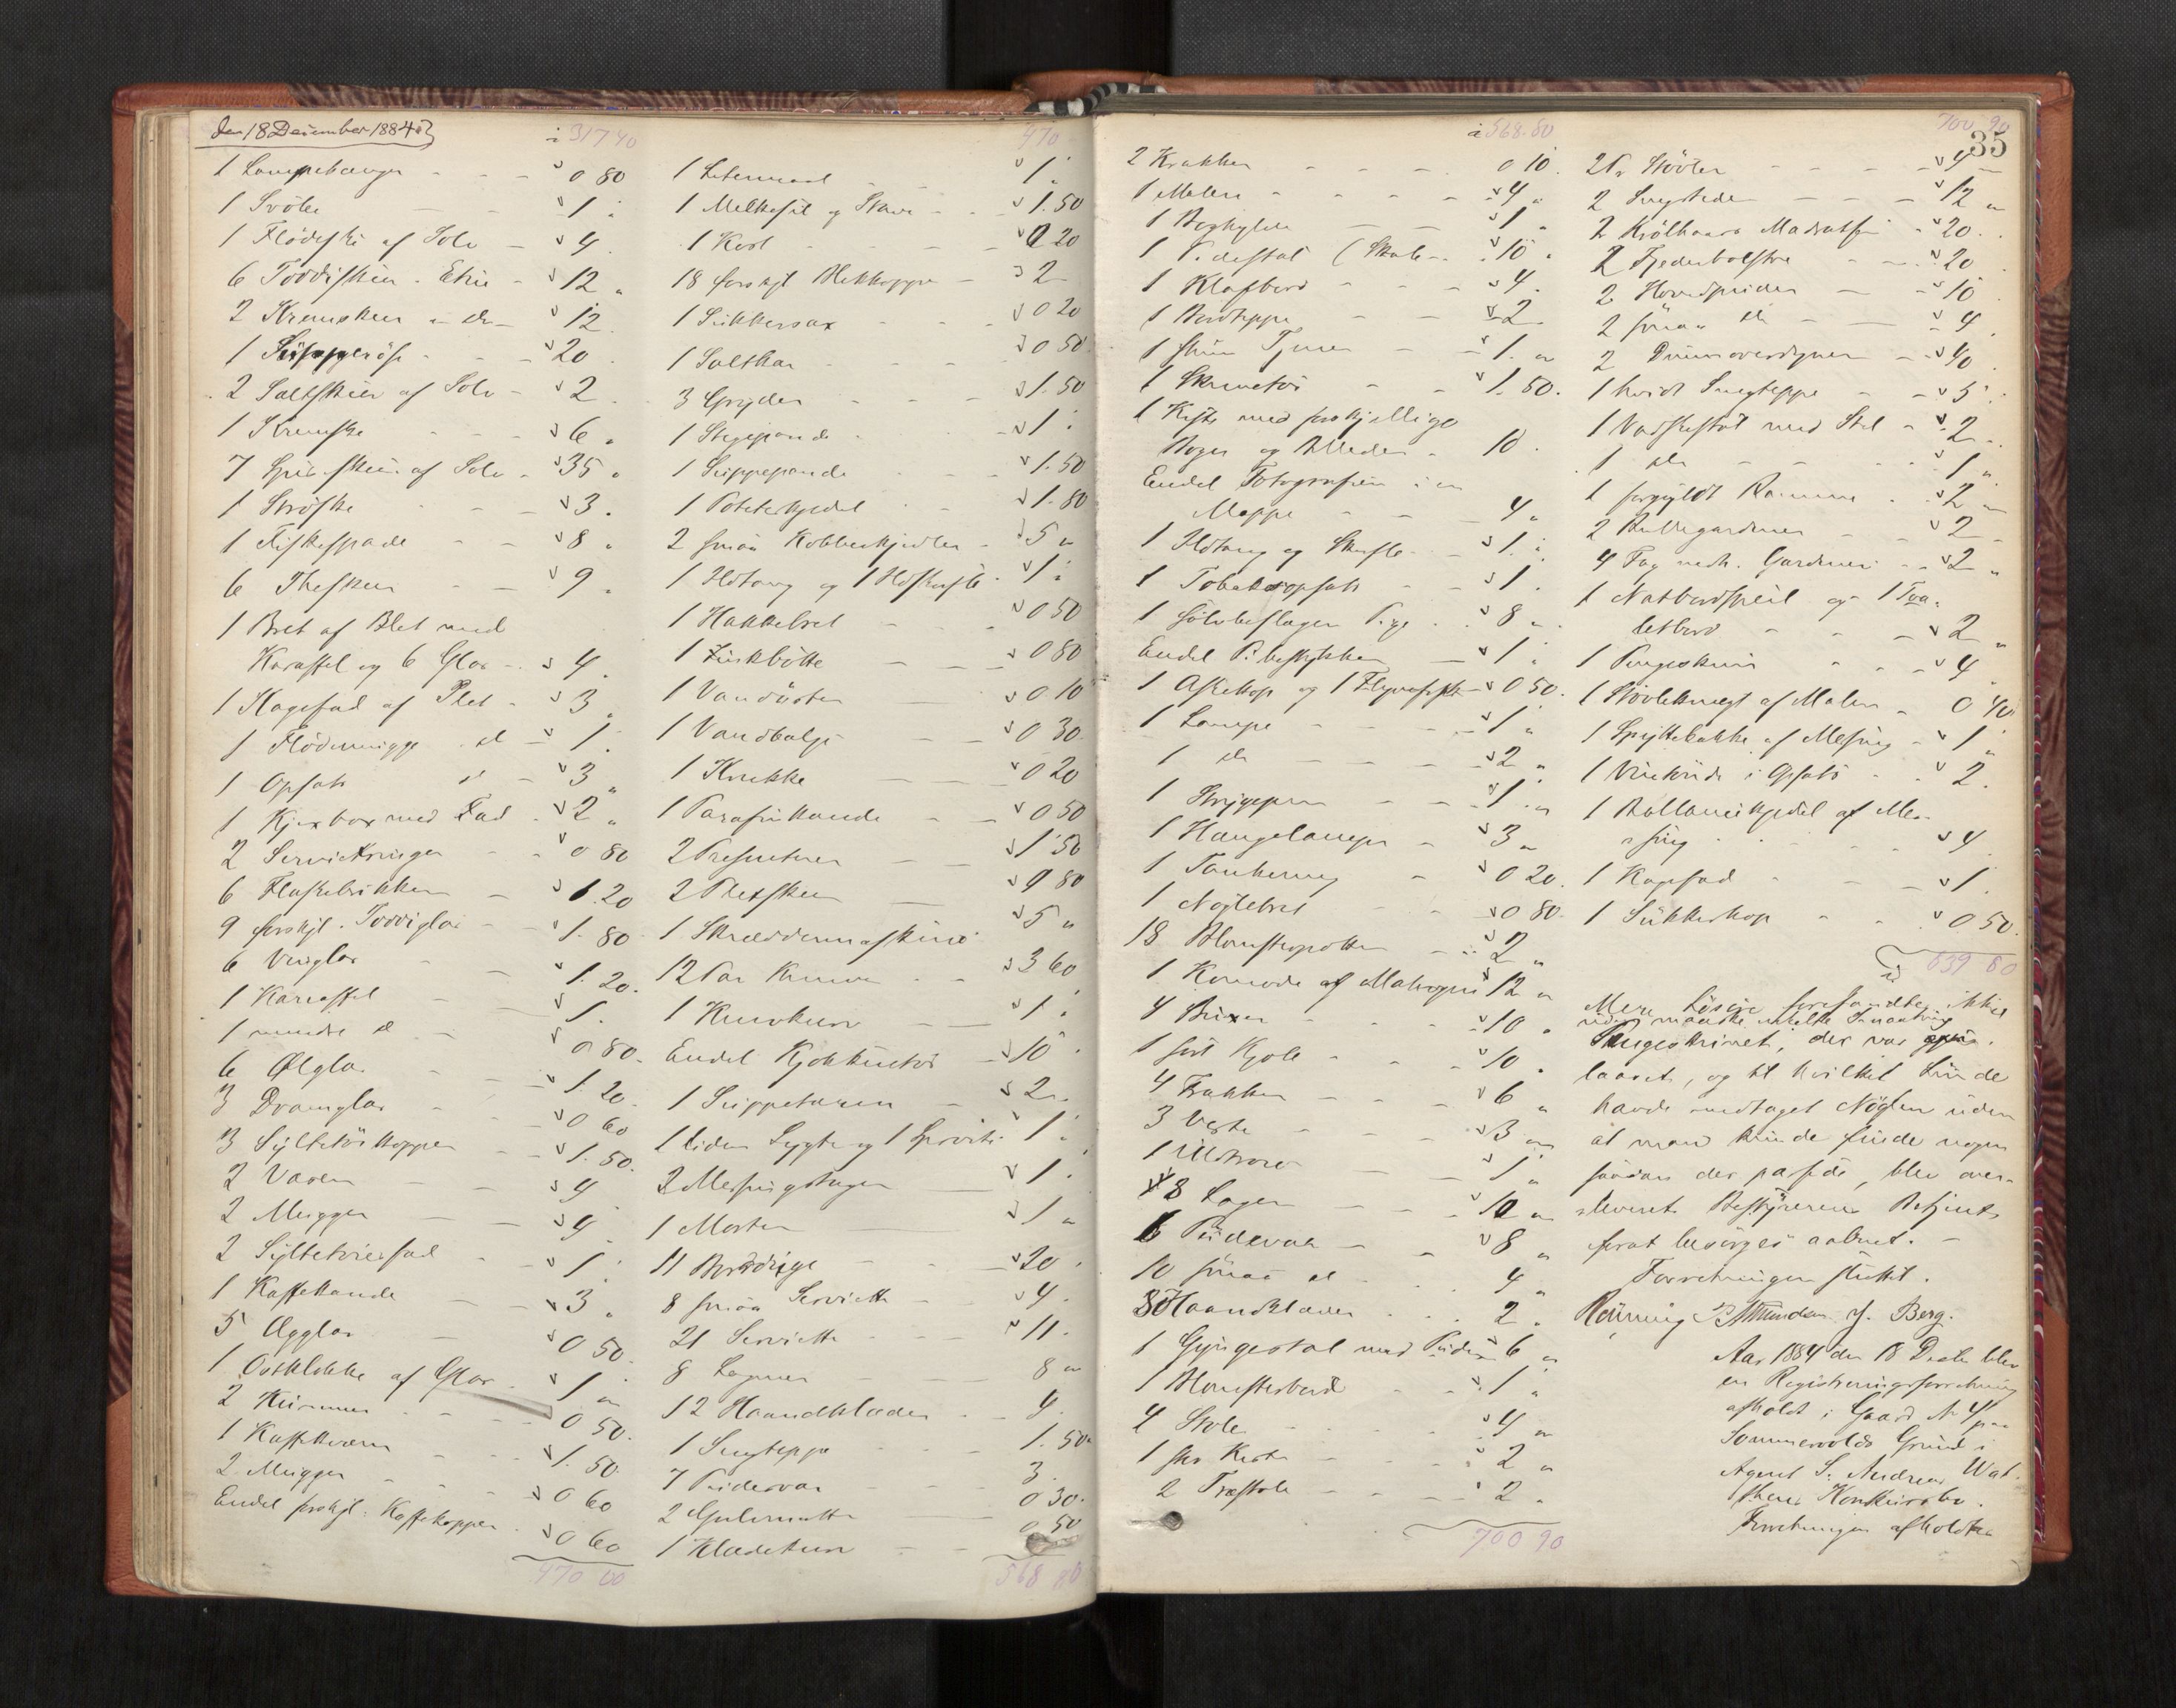 den 18 December 1884
á 317 40
1 Lampehænger - - - 0 80
1 Svöbe - - 1 "
1 Flödeske af Sölv - 4
6 Toddiskeer i Etui - 12 "
2 Kremskeer i do - 12
1 Suppeöse - - 20
2 Saltskeer af Sölv - 2
1 Kremske - - - 6 "
7 Spiseskeer af Sölv - 35 "
1 Ströske - - 3 "
1 Fiskespade - - 8 "
6 Theskeer - - 9 "
1 Bret af Blet med
Karaffel og 6 Glas - 4 "
1 Kagefad af Plet - 3 "
1 Flödemugge dl - 1 "
1 Opsats dl - 3 "
1 Kjexbox med Fad - 2 "
2 Servietringer - - 0 80
6 Flaskebrikker - 1.20
9 forskjl. Toddiglas - - 1.80
6 Vinglas - - 1.20
1 Karaffel - - 1 "
1 mindre dl - - 0 80
6 Ølglas - - 1.20
3 Dramglas - - 0 60
3 Syltetöikopper - - 1.50
2 Vaser - - 4
2 Mugger - - 4
2 Syltetöiesfad - 1 "
1 Kaffekande - 3 "
5 Ægglas - 0 50
1 Osteklokke af Glas - 1 "
2 Kummer - - 0 50
1 Kaffekværn - - 1.50
2 Mugger - - 0 60
Endel forskjl. Kaffekopper - 0 60
470 00
470
1 Litermaal - - 1 "
1 Melkesil og - 1.50
1 Kost - - - 0 20
18 forskjl Blikkopper - 2
1 Sukkersax - - 0 20
1 Saltkar - - - 0 50
3 Gryder - - 1.50
1 Stegepande - - 1 "
1 Suppepande - - 1.50
1 Potetekjedel - - 1.80
2 smaa Kobberkjedler - 5 "
1 Ildtang og 1 Ildskuffe - 1 "
1 Hakkebret - - 0 50
1 Zinkbötte - - 0 80
1 Vandöster - - 0 10
1 Vandbalje - - 0 30
1 Krukke - - 0 20
1 Parafinkande - - 0 50
2 Presenteer - - 1 50
2 Pletskeer - 0 80
1 Skræddermaskine - 5 "
12 Par Knive - - 3 60
1 Knivkurv - - 1 "
Endel Kjökkentöi - 10 "
1 Suppeterrin - 2 "
1 liden Lygte og 1 - 1 "
2 Messingstager - 1 "
1 Morter - 1 "
11 Bordduge - - 20 "
8 smaa Servietter - 4 "
21 Servietter - - 11 "
8 Lagener - - 8 "
12 Haandklæder - - 4
1 Sengteppe - - 1.50
7 Pudevar - - 3
2 Gulvmatter - - 0 30
1 Klædekurv - - 0 50
568 80
35
á 568.80
2 Krakker - - - 0 10
1 Maleri - - - - 4 "
1 Boghylde - - 1 "
1 Pidestal ( - 10 "
1 Klafbord - - - 4 "
1 Bordteppe - - - 2
1 - 1 "
1 Skrivetöi - - - 1.50
1 Kiste med forskjellige
Böger og Billeder - 10 "
Endel Fotografier i en
Mappe - - - 4 "
1 Ildtang og Skuffe - 1 "
1 Tobaksopsats - - 1 "
1 sölvbeslagen Pibe - 8 "
Endel Pibestykker - 1 "
1 Askekop og 1 - 0 50
1 Lampe - - - 1 "
1 do - - - 2 "
1 - - 1 "
1 Hængelampe - 3 "
1 - 0 20
1 Nöglebret - - 0 80
18 Blomsterpotter - - 2 "
1 Komode af Mahogni 12 "
4 Buxer - - - 10 "
1 sort Kjole - - 10 "
4 Frakker - - - 6 "
3 Veste - - - 3 "
1 - - 1 "
8 Lagen - - - 10 "
6 Pudevar - - 8 "
10 smaa dl - - 4 "
30 Haandklæder - - 2 "
1 Gyngestol med Puder 6 "
1 Blomsterbord - - 1 "
4 Stole - - - 4 "
1 stor Kiste - - 2 "
2 Træstole - - - 2 "
700 90
700 90
2 Pr Stövler - - - 4
2 Sengsteder - - - 12 "
2 Krölhaars Madratser - 20 "
2 Fjederbolstre - - 20
2 Hovedpuder - - 10
2 smaa do - - 4
2 Dunoverdyner - - 40
1 hvidt Sengteppe - - 5 "
1 Vadskestol med Stel - 2 "
1 do - - - 1 "
1 forgyldt Ramme - 2 "
2 Rullegardiner - - 2 "
4 Fag nedh. Gardiner - 2 "
1 Natbordspeil og 1 Toa-
letbord - - - 2 "
1 Pengeskrin - - 4
1 Stövleknægt af Malm - 0 40
1 Spyttebakke af Messing - 1 "
1 i Opsats - - 2
1 af Mes-
sing - - - 4
1 Kagefad - - - 1 "
1 Sukkerkop - - - 0 50
839 80
Mere Lösöre forefandtes ikke
uden maaske enkelte Smaating
Pengeskrinet, der var
laaset, og til hvilket Lunde
havde medtaget Nöglen uden
at man kunde finde nogen
saadan der passede, blev over-
leveret Bestyrerens Betjent
forat besörges aabnet. -
Forretningen sluttet.
Rönning P. Amundsen J. Berg.
Aar 1884 den 18 Decbr blev
en Registreringsforretning
afholdt i Gaard No 4 paa
Sommervolds Grund i
Agent S. Andreas Wat-
Konkursbo.
Forretningen afholdtes